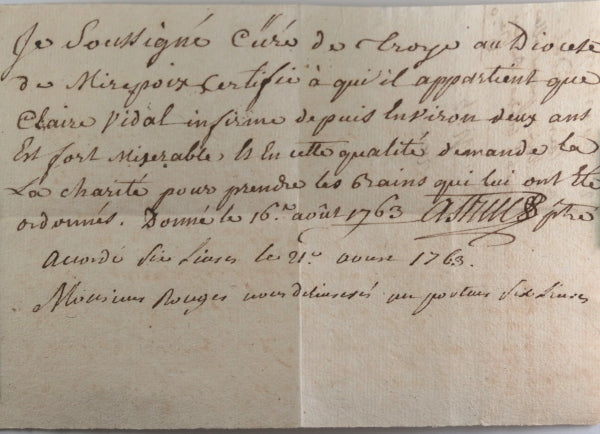 Je Soussigné Cüré de Troye au Diocese
de Mirepoix Certifie à qu'il appartient que
Claire Vidal infirme depuis Environ deux ans
Est fort Miserable, Et En cette qualité demande la
La charité pour prendre les Bains qui lui ont Eté
ordonnés. Donné le 16.e août 1763 ptre
Acordé Six Liures le 21e 1763.
Monsieur Rouges vous deliureres au porteur Six Liures